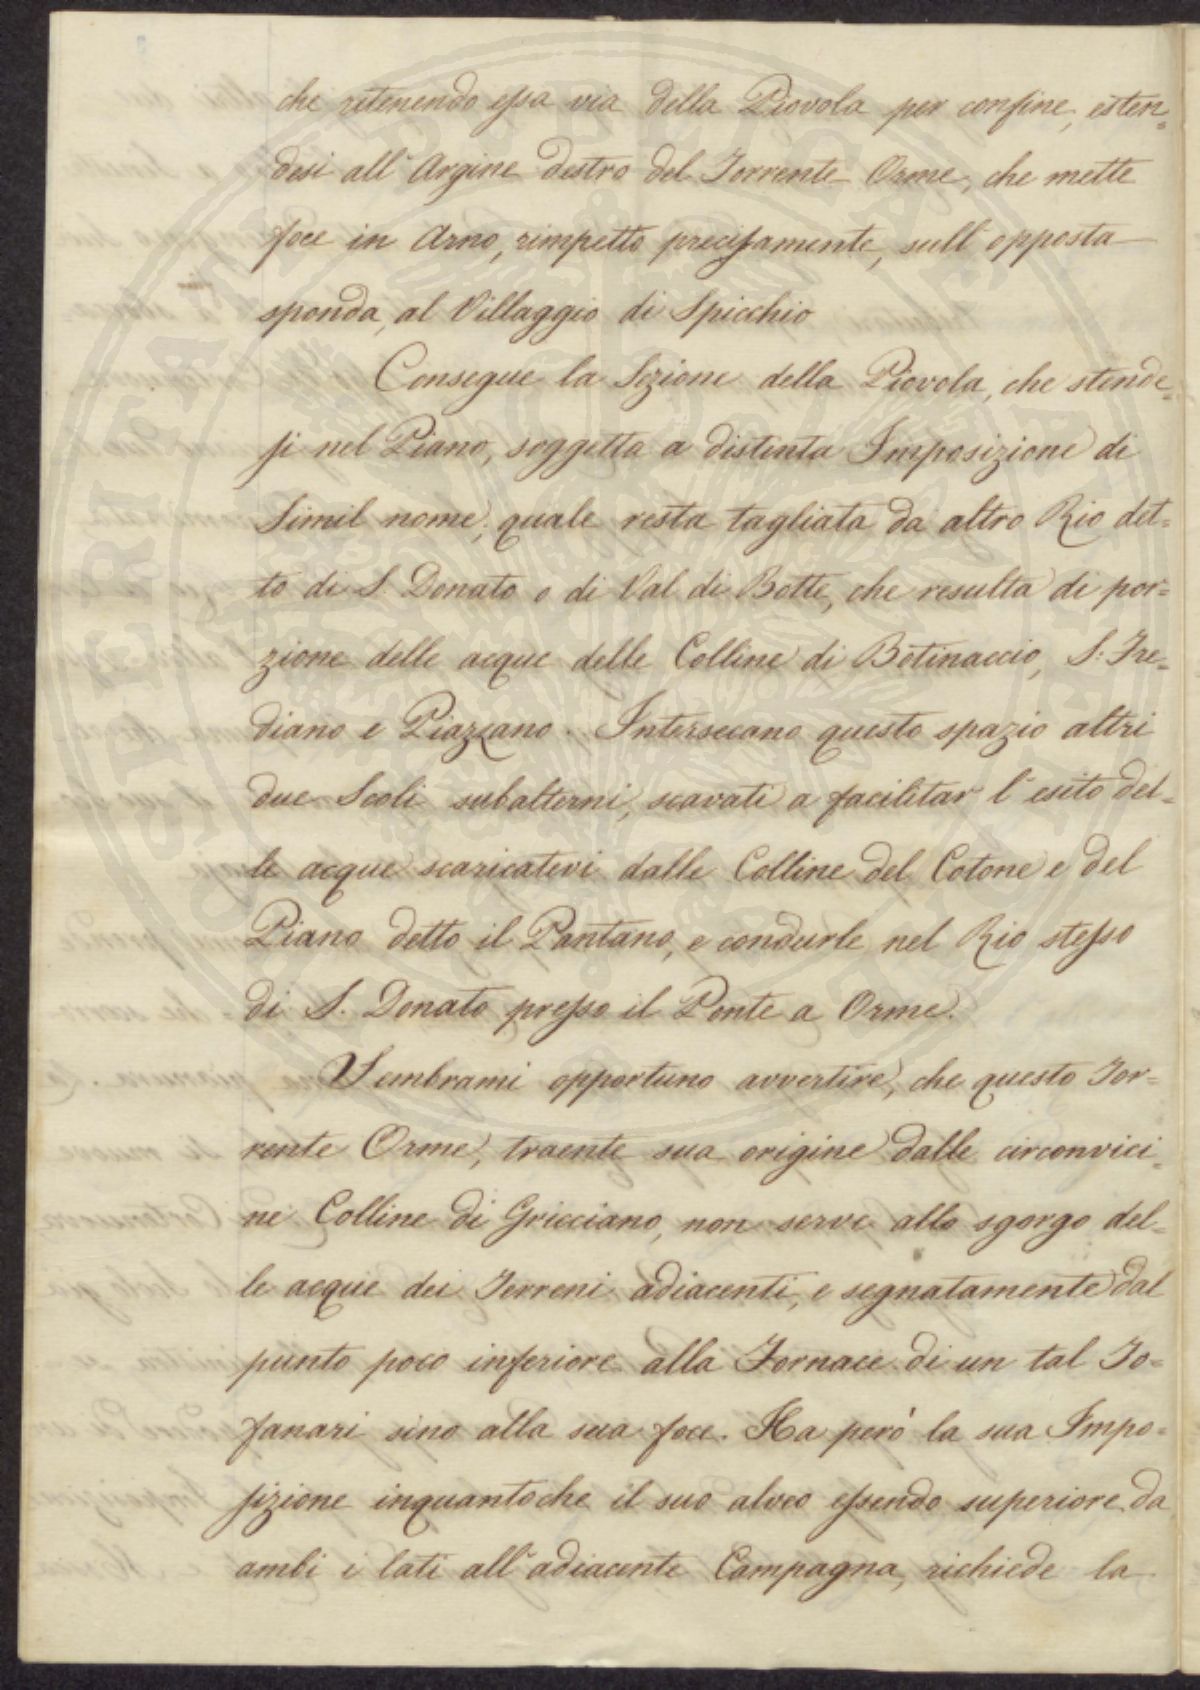 che ritenendo essa via della Piovola per confine, esten=
desi all'Argine destro del Torrente Orme, che mette
foce in Arno, rimpetto precisamente, sull'opposta
sponda, al Villaggio di Spicchio
Consegue la Sezione della Piovola, che stende=
si nel Piano, soggetta a distinta Imposizione di
Simil nome; quale resta tagliata da altro Rio det=
to di S. Donato o di Val di Botte, che resulta di por=
zione delle acque delle Colline di Botinaccio, S. Fre=
diano e Piazzano. Intersecano questo spazio altri
due Scoli subalterni, scavati a facilitar l'esito del=
le acque scaricatevi dalle Colline del Cotone e del
Piano detto il Pantano, e condurle nel Rio stesso
di S. Donato presso il Ponte a Orme.
Sembrami opportuno avvertire, che questo Tor=
rente Orme, traente sua origine dalle circonvici=
ne Colline di Gricciano, non serve allo sgorgo del=
le acque dei Terreni adiacenti, e segnatamente dal
punto poco inferiore alla Fornace di un tal To=
fanari sino alla sua foce. Ha però la sua Impo=
sizione inquantoche il suo alveo essendo superiore da
ambi i lati all'adiacente Campagna, richiede la